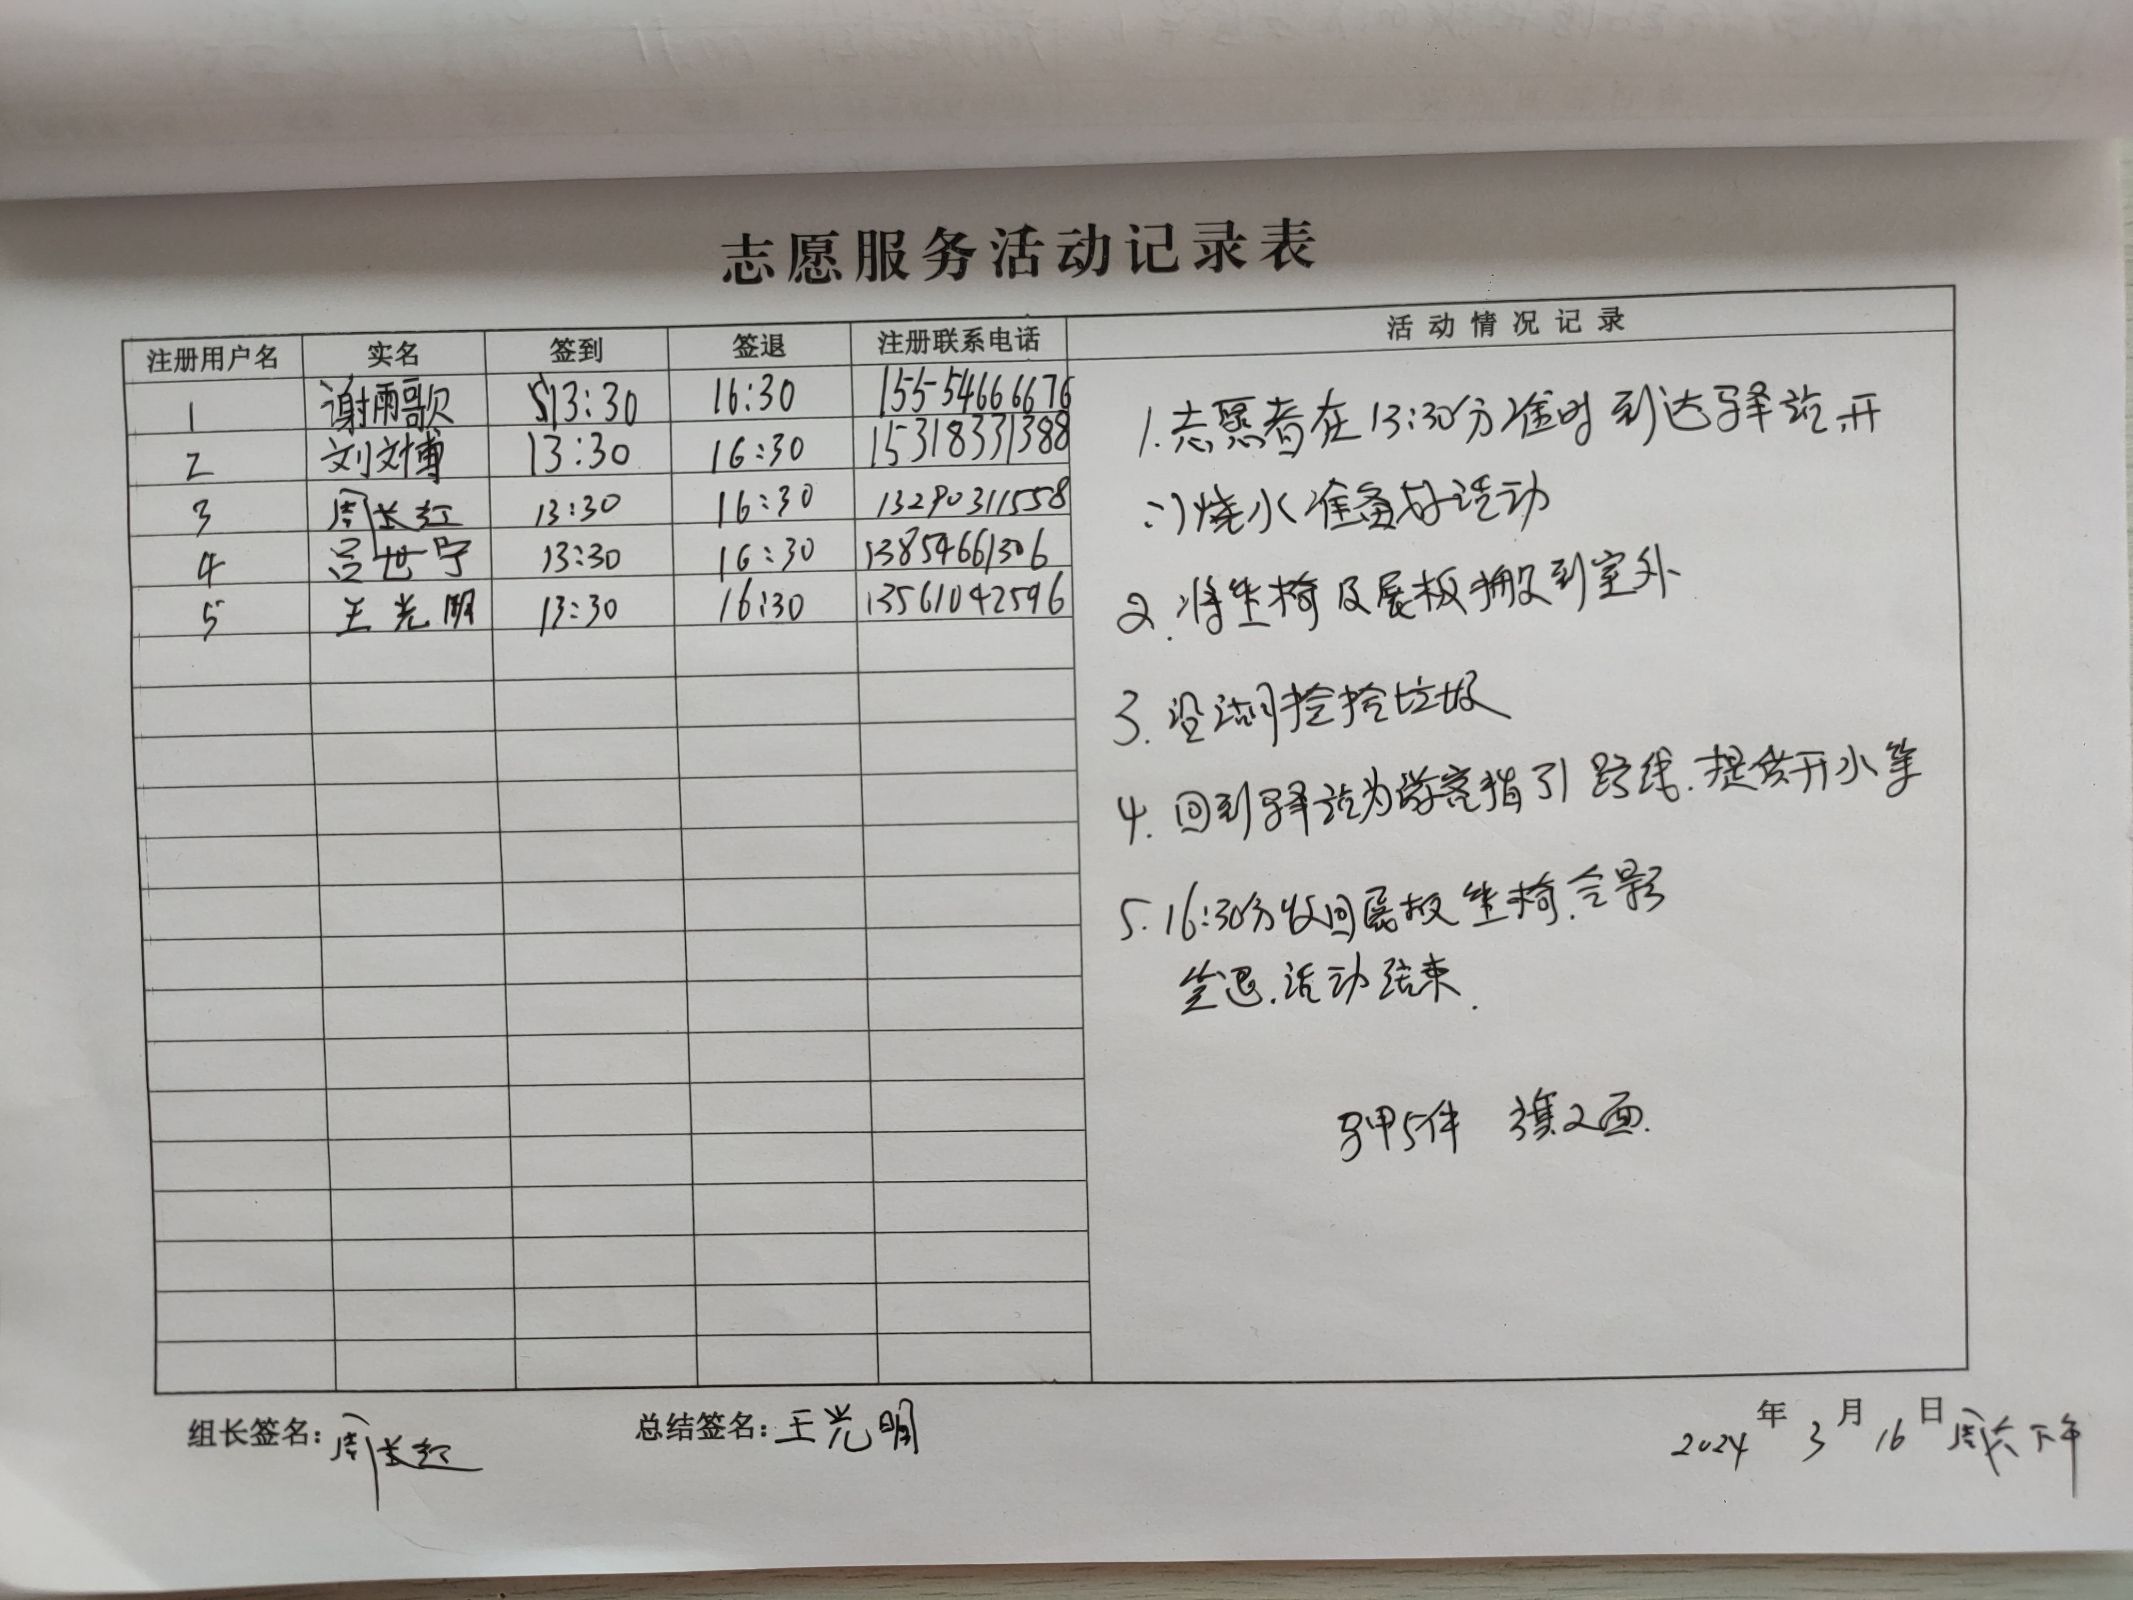 志愿服务活动记录表
注册用户名 实名 签到 签退 注册联系电话 活动情况记录
1 谢雨歌 13:30 16:30 15554666676
2 刘文博 13:30 16:30 15318331388
3 周长红 13:30 16:30 13290311558
4 吕世宁 13:30 16:30 13854661306
5 王光明 13:30 16:30 13561042596
1.志愿者在13:30分准时到达驿站,开
门烧水准备好活动
2.将坐椅及展板搬到室外
3.沿湖捡拾垃圾
4.回到驿站为游客指引路线.提供开水等
5.16:30分收回展板坐椅.合影
签退.活动结束.
马甲5件 旗2面.
组长签名:周长红 总结签名:王光明 2024年3月16日周六下午